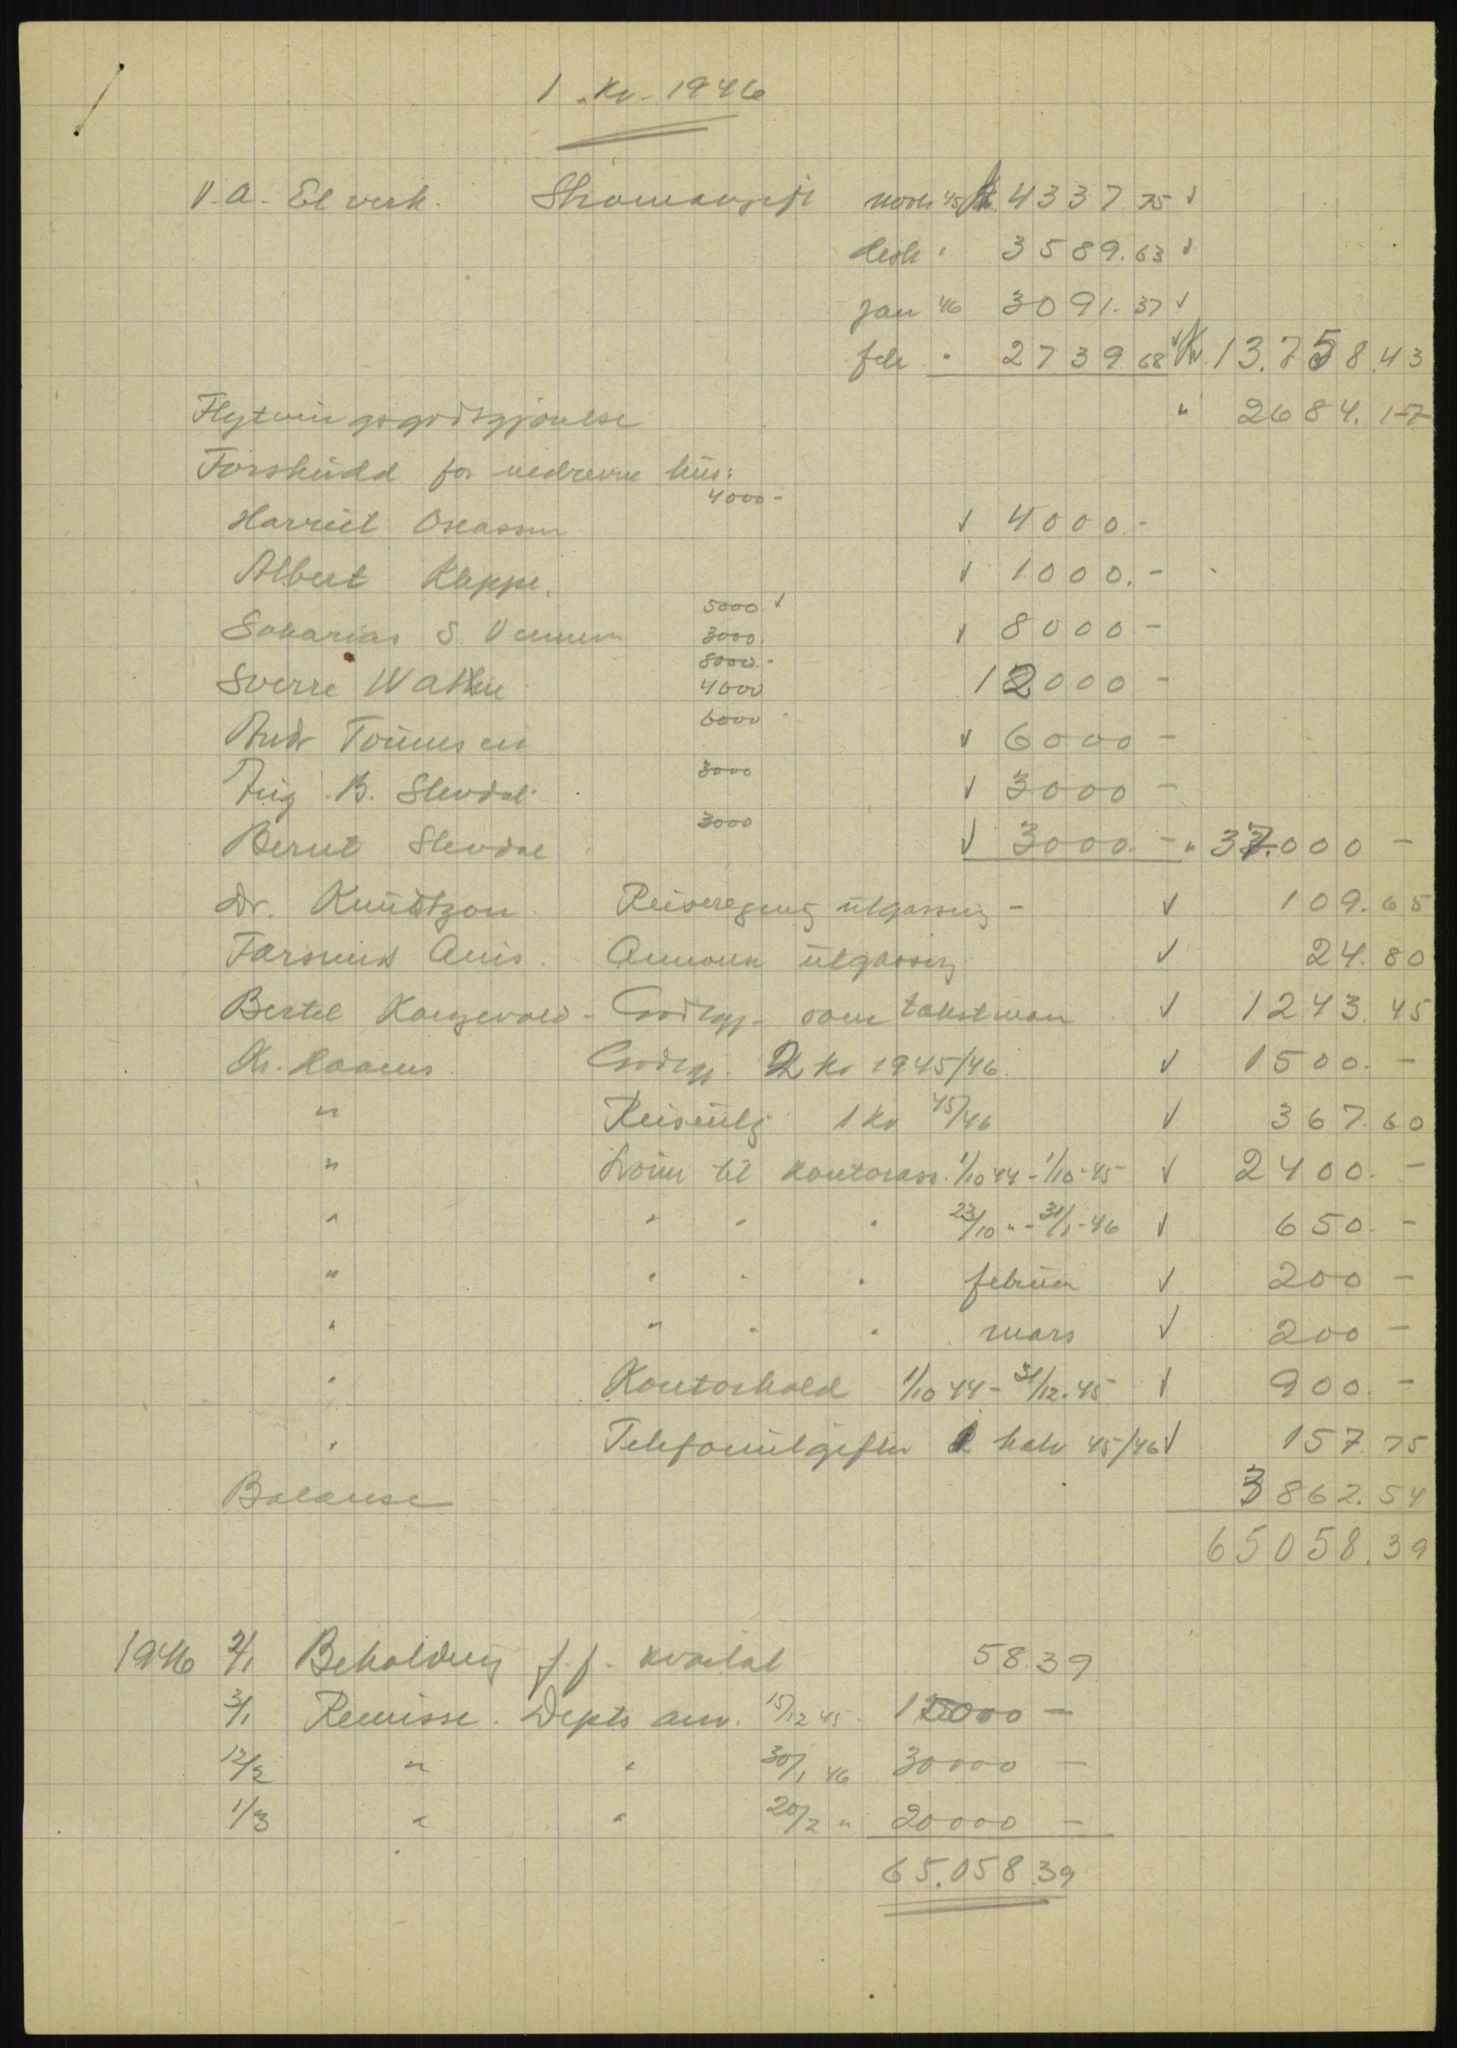 1. Kv. 1946
V. A. Elverk. Strømavgift novbr 45 Kr. 4337.75 √
desbr " 3589.63 √
jan 46 3091.37 √
febr " 2739.68 √ Kr. 13.758.43
Flytningsgodtgjørelse " 2684.17
Forskudd for nedrevne hus:
4000 -
Harriet Oseassen √ 4000.-
Albert Kleppe. √ 1000.-
5000. √
Sakarias S. Vemmen 3000. √ 8000 -
8000.-
Sverre Wathne 4000 12000 -
6000
Andr Tønnesen √ 6000 -
3000
Ing. B. Slevdal √ 3000 -
3000
Bernt Slevdal √ 3000.- " 37.000 -
Dr. Knudtzon Reiseregning utgassing - √ 109.65
Farsund Avis. Annonse utgassing √ 24.80
Bertel Kongevold - Godtgj. som takstman √ 1243.45
Kr. Haaeus Godtgj. 2 kv 1945/46 √ 1500.-
" Reiseutg 1 kv 45/46 √ 367.60
" Lønn til kontorass. 1/10 44 - 1/10-45 √ 2400.-
" " " " 23/10 " - 31/1-46 √ 650.-
" " " " februar √ 200 -
" " " " mars √ 200 -
" Kontorhold 1/10 44 - 31/12.45 √ 900.-
" Telefonutgifter 2 halv 45/46 √ 157.75
Balanse 3862.54
65058.39
1946 2/1 Beholdning f. f. kvartal 58.39
3/1 Remisse. Depts anv. 15/12 45 15000 -
12/2 " " 30/1 46 30000 -
1/3 " " 20/2 " 20000 -
65.058.39